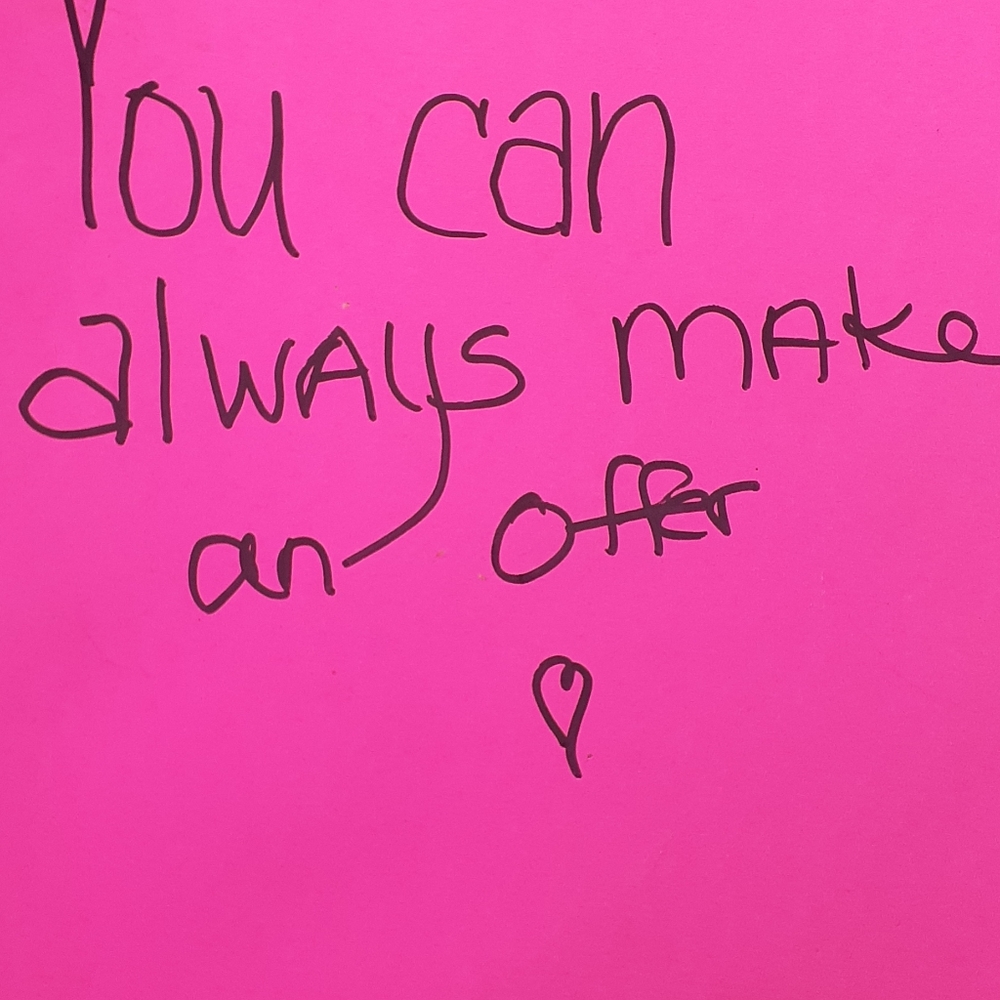 You can
always make
an offer